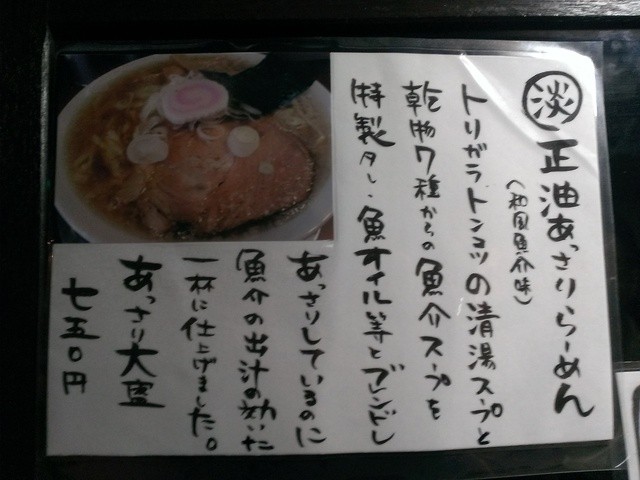 淡 正油あっさりらーめん
(和風魚介味)
トリガラ、トンコツの清湯スープと
乾物7種からの魚介スープを
特製タレ、魚オイル等とブレンドし
あっさりしているのに
魚介の出汁の効いた
一杯に仕上げました。
あっさり大盛
七五〇円